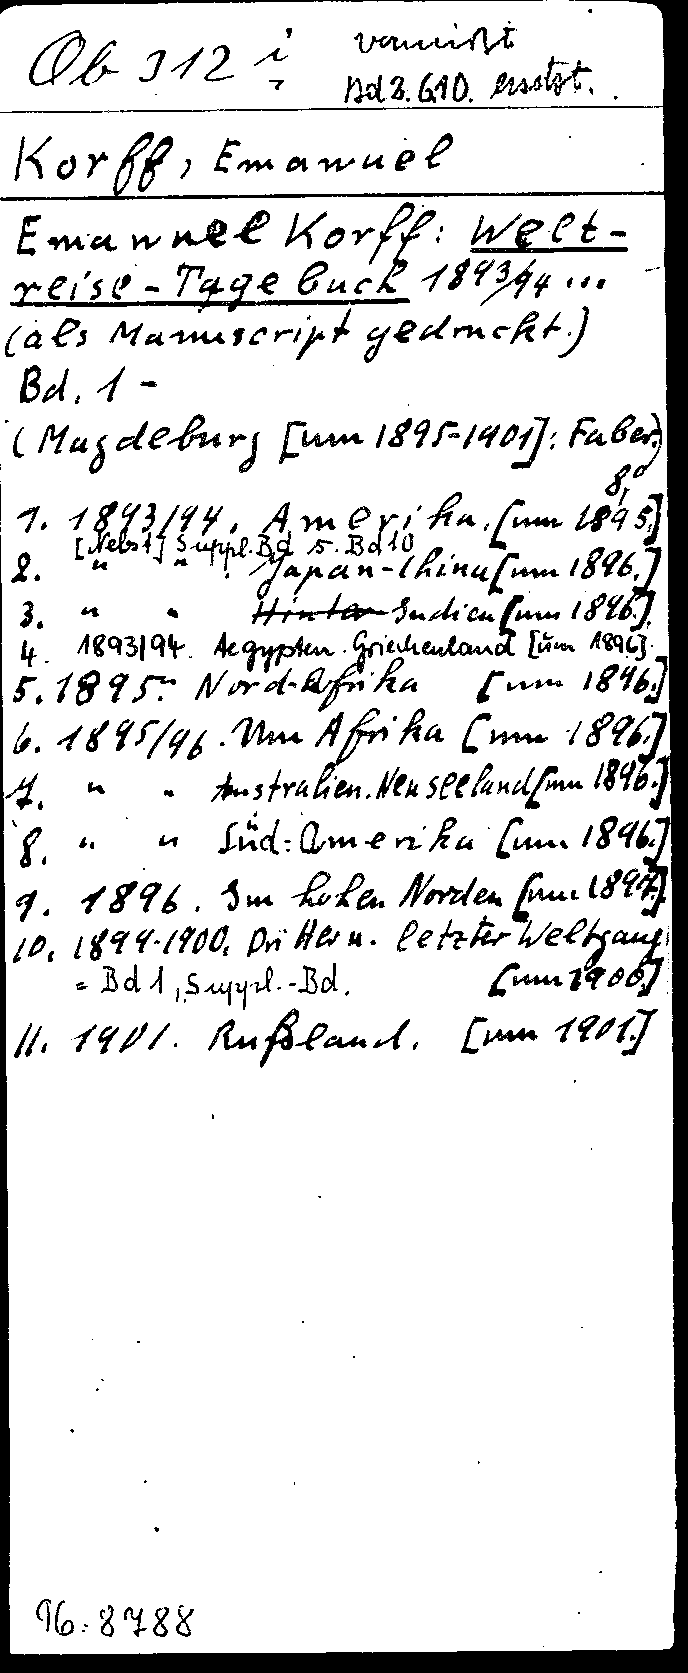 Ob 312 i
vermißt
Bd 3.6.10. ersetzt.
Korff, Emanuel
Emanuel Korff: Welt-
reise-Tagebuch 1893/94 ...
(als Manuscript gedruckt.)
Bd. 1 -
(Magdeburg [um 1895-1901]: Faber.)
8°
1. 1893/94. Amerika. [um 1895.]
[Nebst] Suppl. Bd s. Bd 10
2. " " Japan-China [um 1896.]
3. " " Hinter Indien [um 1896].
4. 1893/94. Aegypten. Griechenland [um 1896].
5. 1895. Nord-Afrika [um 1896.]
6. 1895/96. Um Afrika [um 1896.]
7. " " Australien. Neuseeland [um 1896.]
8. " " Süd-Amerika [um 1896.]
9. 1896. Im hohen Norden [um 1897.]
10. 1899-1900. Dritter u. letzter Weltgang
= Bd 1, Suppl.-Bd. [um 1900.]
11. 1901. Rußland. [um 1901.]
96.8788